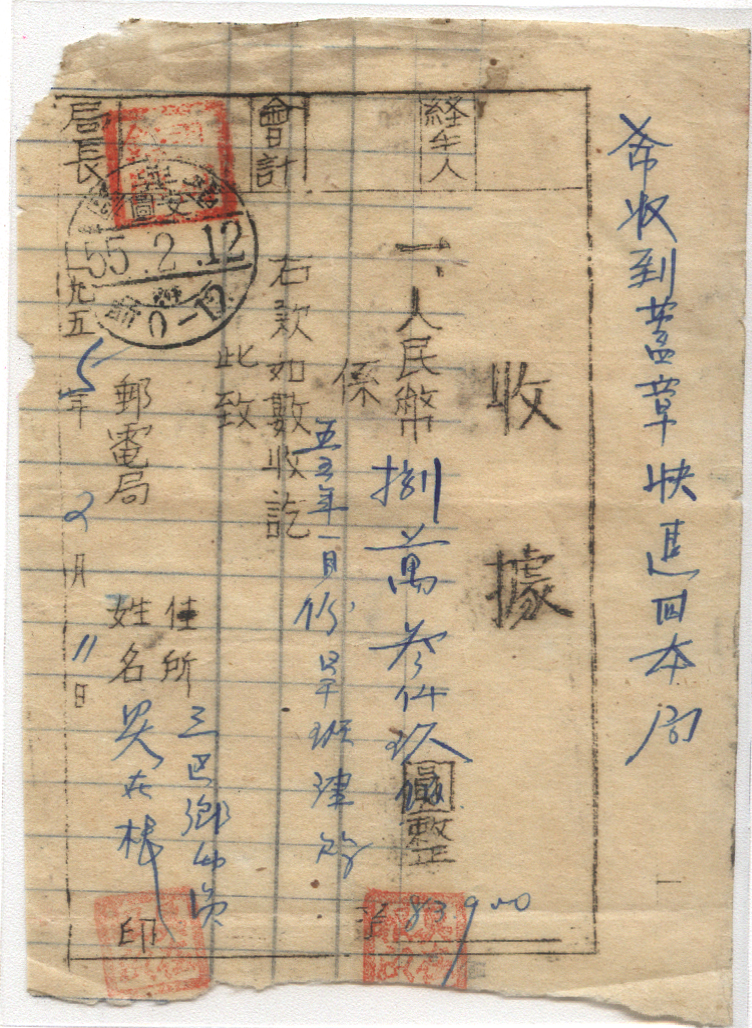 希收到蓋章快退回本局
收據
経手人
一、人民幣捌萬叁仟玖佰圓整
83900
係
五五年一月份
會計
右款如數收訖
此致
郵電局
住所 三區鄉
姓名 吴在根 印
局長
安圖
55.2.12
一九五5年2月11日